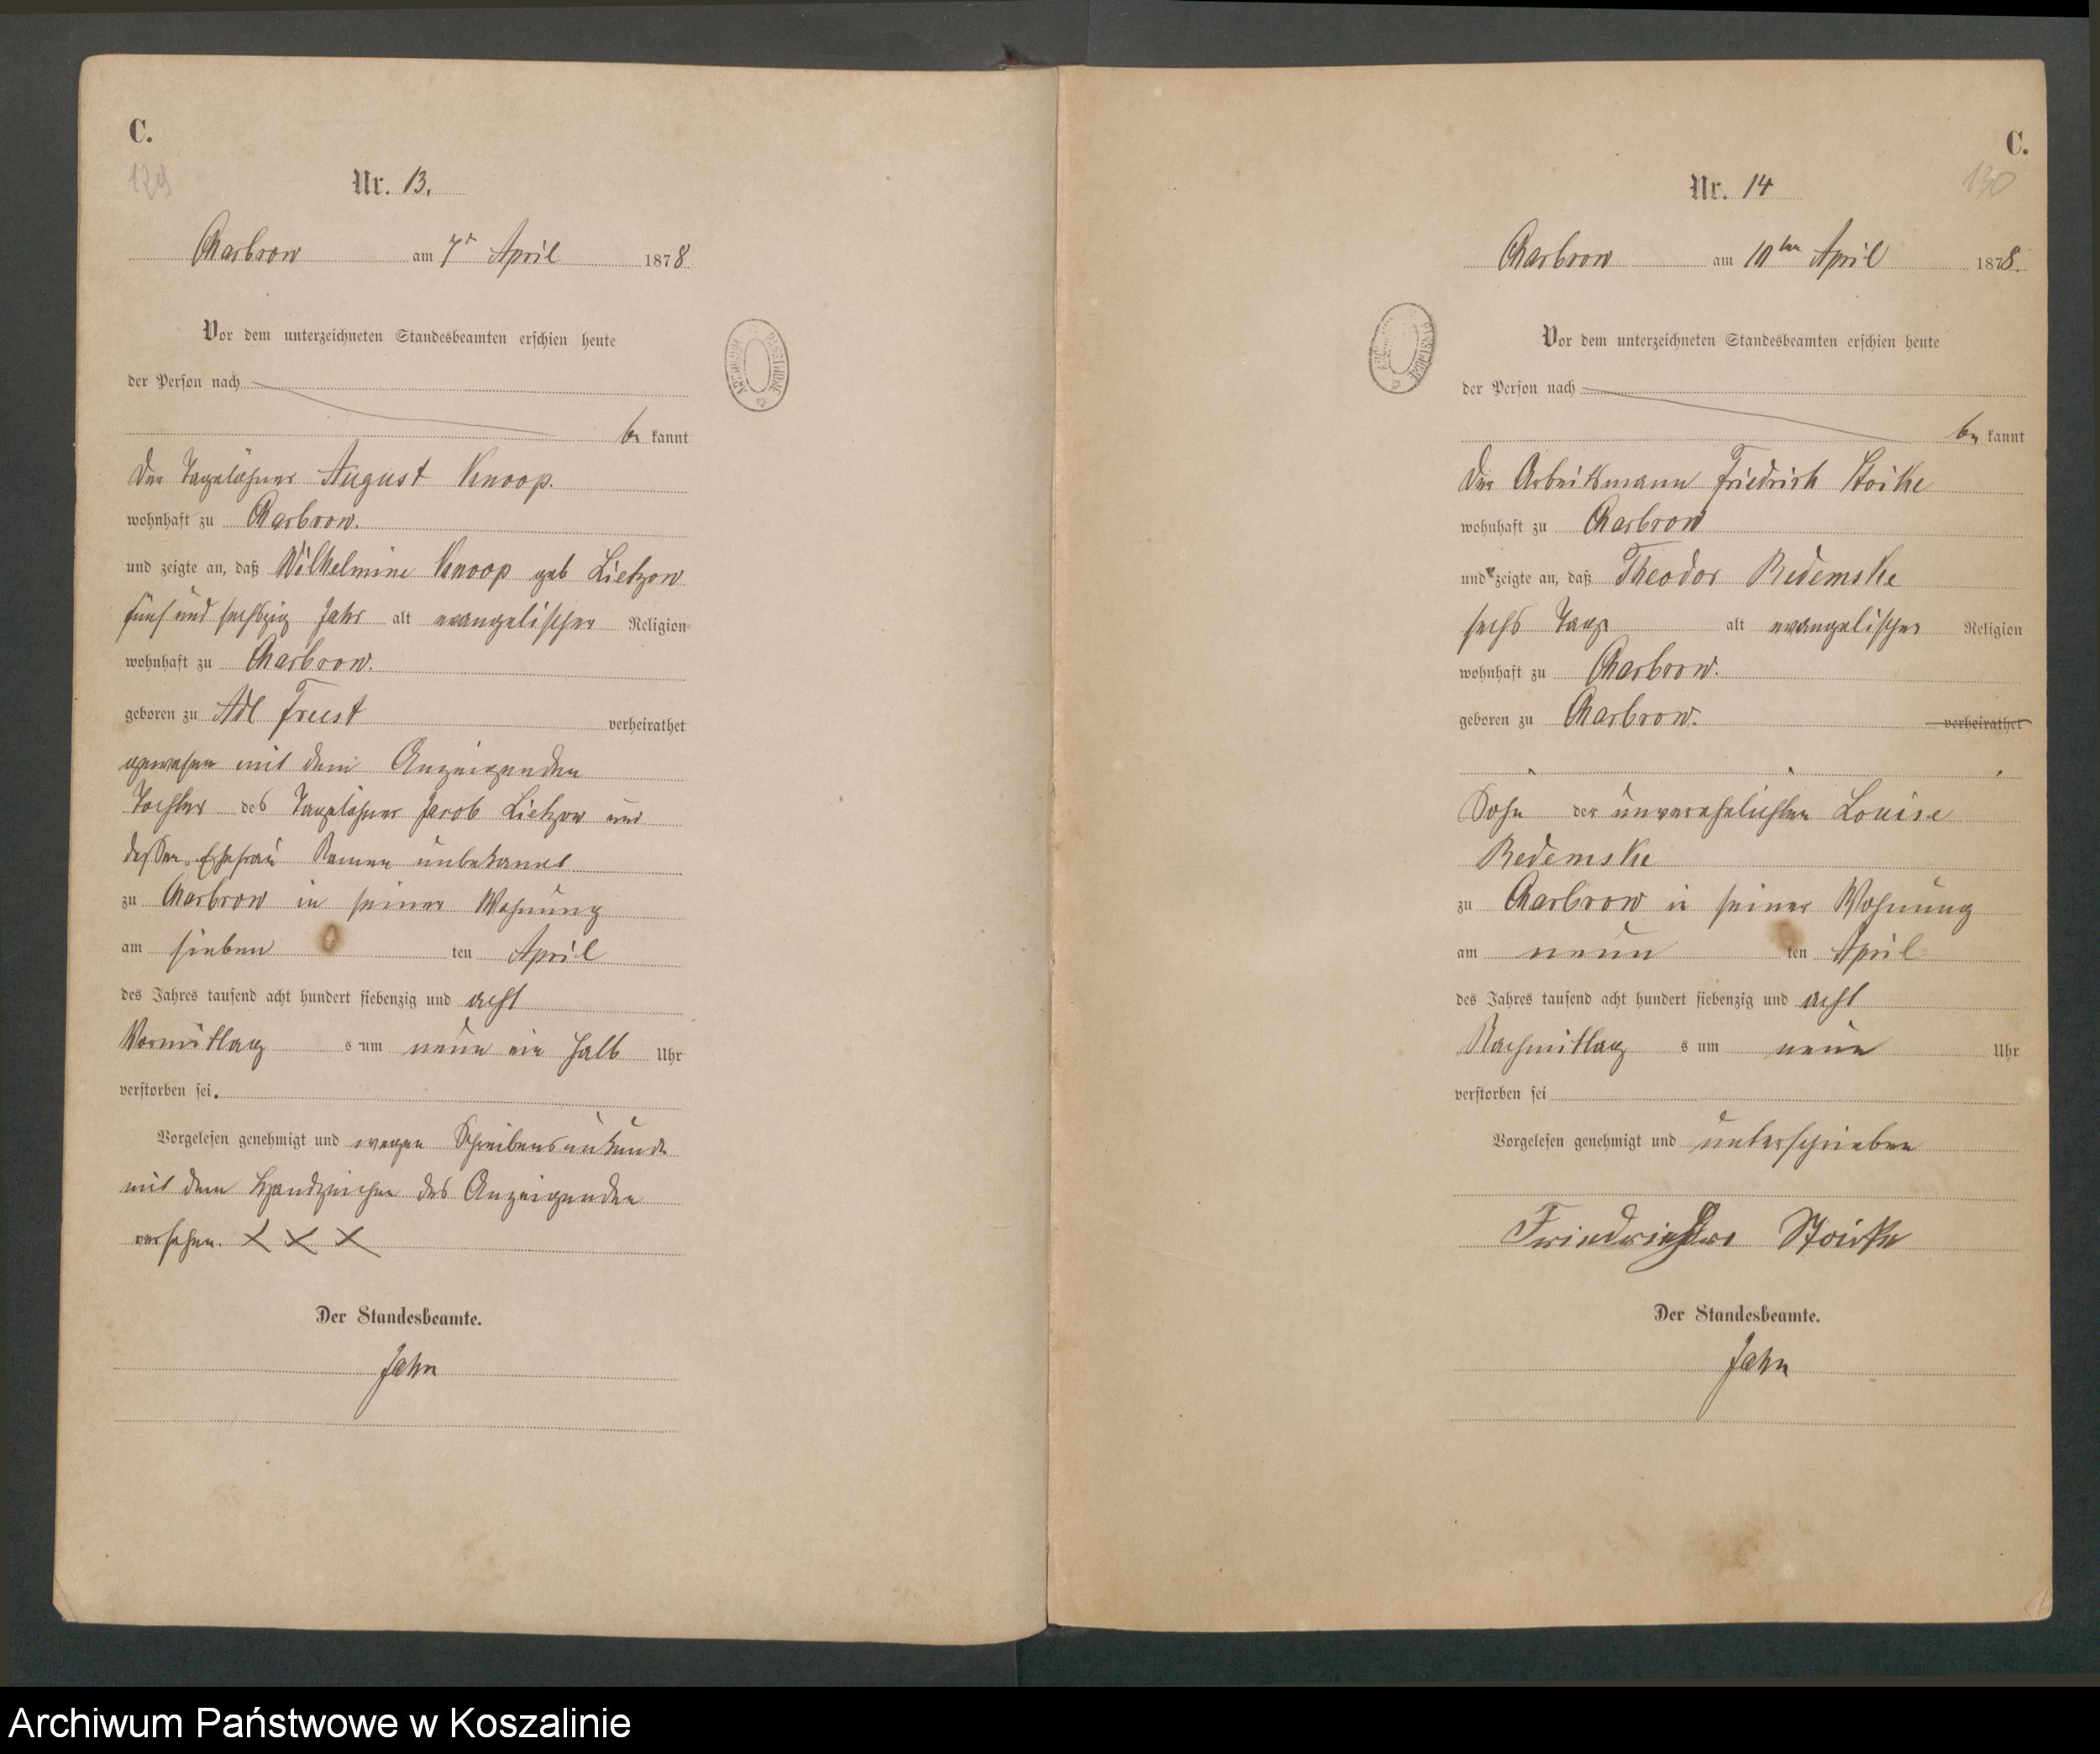 C.
129
Nr. 13.
Charbrow am 7t April 1878.
Vor dem unterzeichneten Standesbeamten erschien heute
der Person nach
be kannt
der Tagelöhner August Knoop.
wohnhaft zu Charbrow.
und zeigte an, daß Wilhelmine Knoop geb Lietzow
fünf und sechszig Jahr alt evangelischer Religion
wohnhaft zu Charbrow.
geboren zu Adl Freest verheirathet
gewesen mit dem Anzeigenden
Tochter des Tagelöhner Jacob Lietzow und
dessen Ehefrau Namen unbekannt
zu Charbrow in seiner Wohnung
am sieben ten April
des Jahres tausend acht hundert siebenzig und acht
Vormittag s um neun ein halb Uhr
verstorben sei.
Vorgelesen genehmigt und wegen Schreibensunkunde
mit dem Handzeichen des Anzeigenden
versehen. X X X
Der Standesbeamte.
Jahn
C.
130
Nr. 14
Charbrow am 10ten April 1878.
Vor dem unterzeichneten Standesbeamten erschien heute
der Person nach
be kannt
der Arbeitsmann Friedrich Stoike
wohnhaft zu Charbrow
und zeigte an, daß Theodor Redemske
sechs Tage alt evangelischer Religion
wohnhaft zu Charbrow.
geboren zu Charbrow. verheirathet
Sohn der unverehelichten Louise
Redemske
zu Charbrow in seiner Wohnung
am neun ten April
des Jahres tausend acht hundert siebenzig und acht
Nachmittag s um neun Uhr
verstorben sei
Vorgelesen genehmigt und unterschrieben
Stoike
Der Standesbeamte.
Jahn
Archiwum Państwowe w Koszalinie